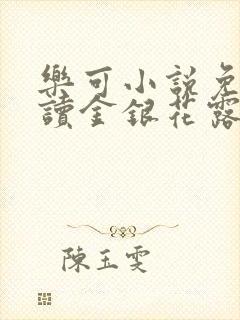 樂可小說免
讀金銀花露
陳玉雯